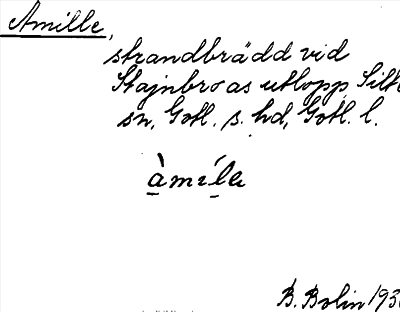 Amille,
strandbrädd vid
Stajnbroas utlopp, Silte
sn, Gotl. s. hd, Gotl. l.
àmíla
B. Bolin 193